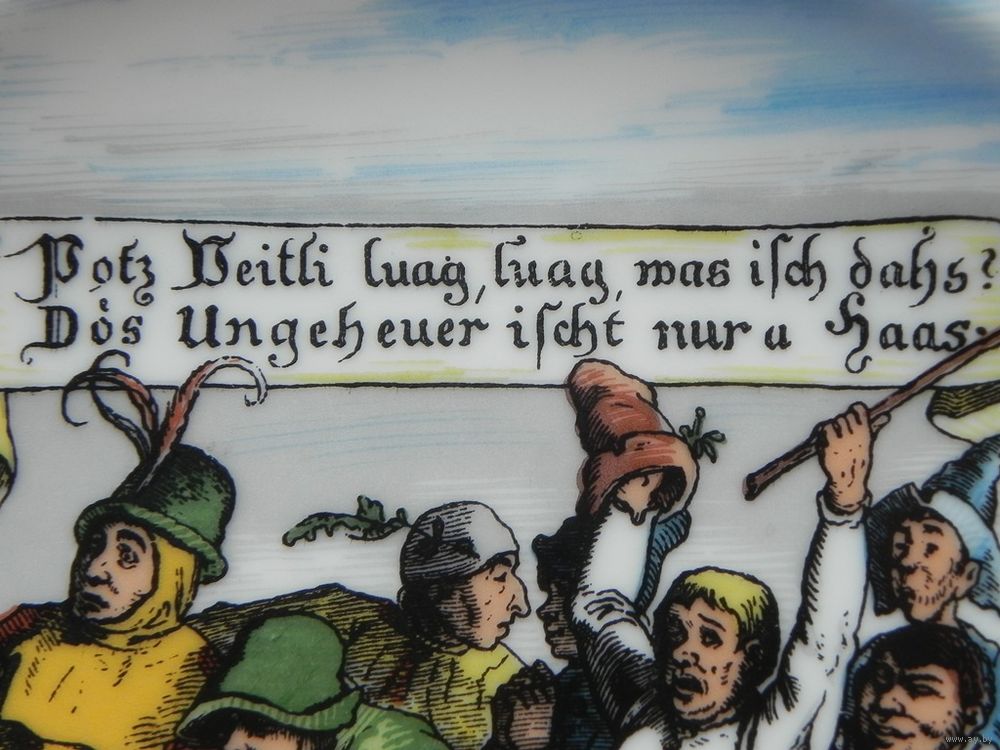 Potz Veitli luag, luag, was isch dahs?
Dös Ungeheuer ischt nur a Haas.
www.ay.by